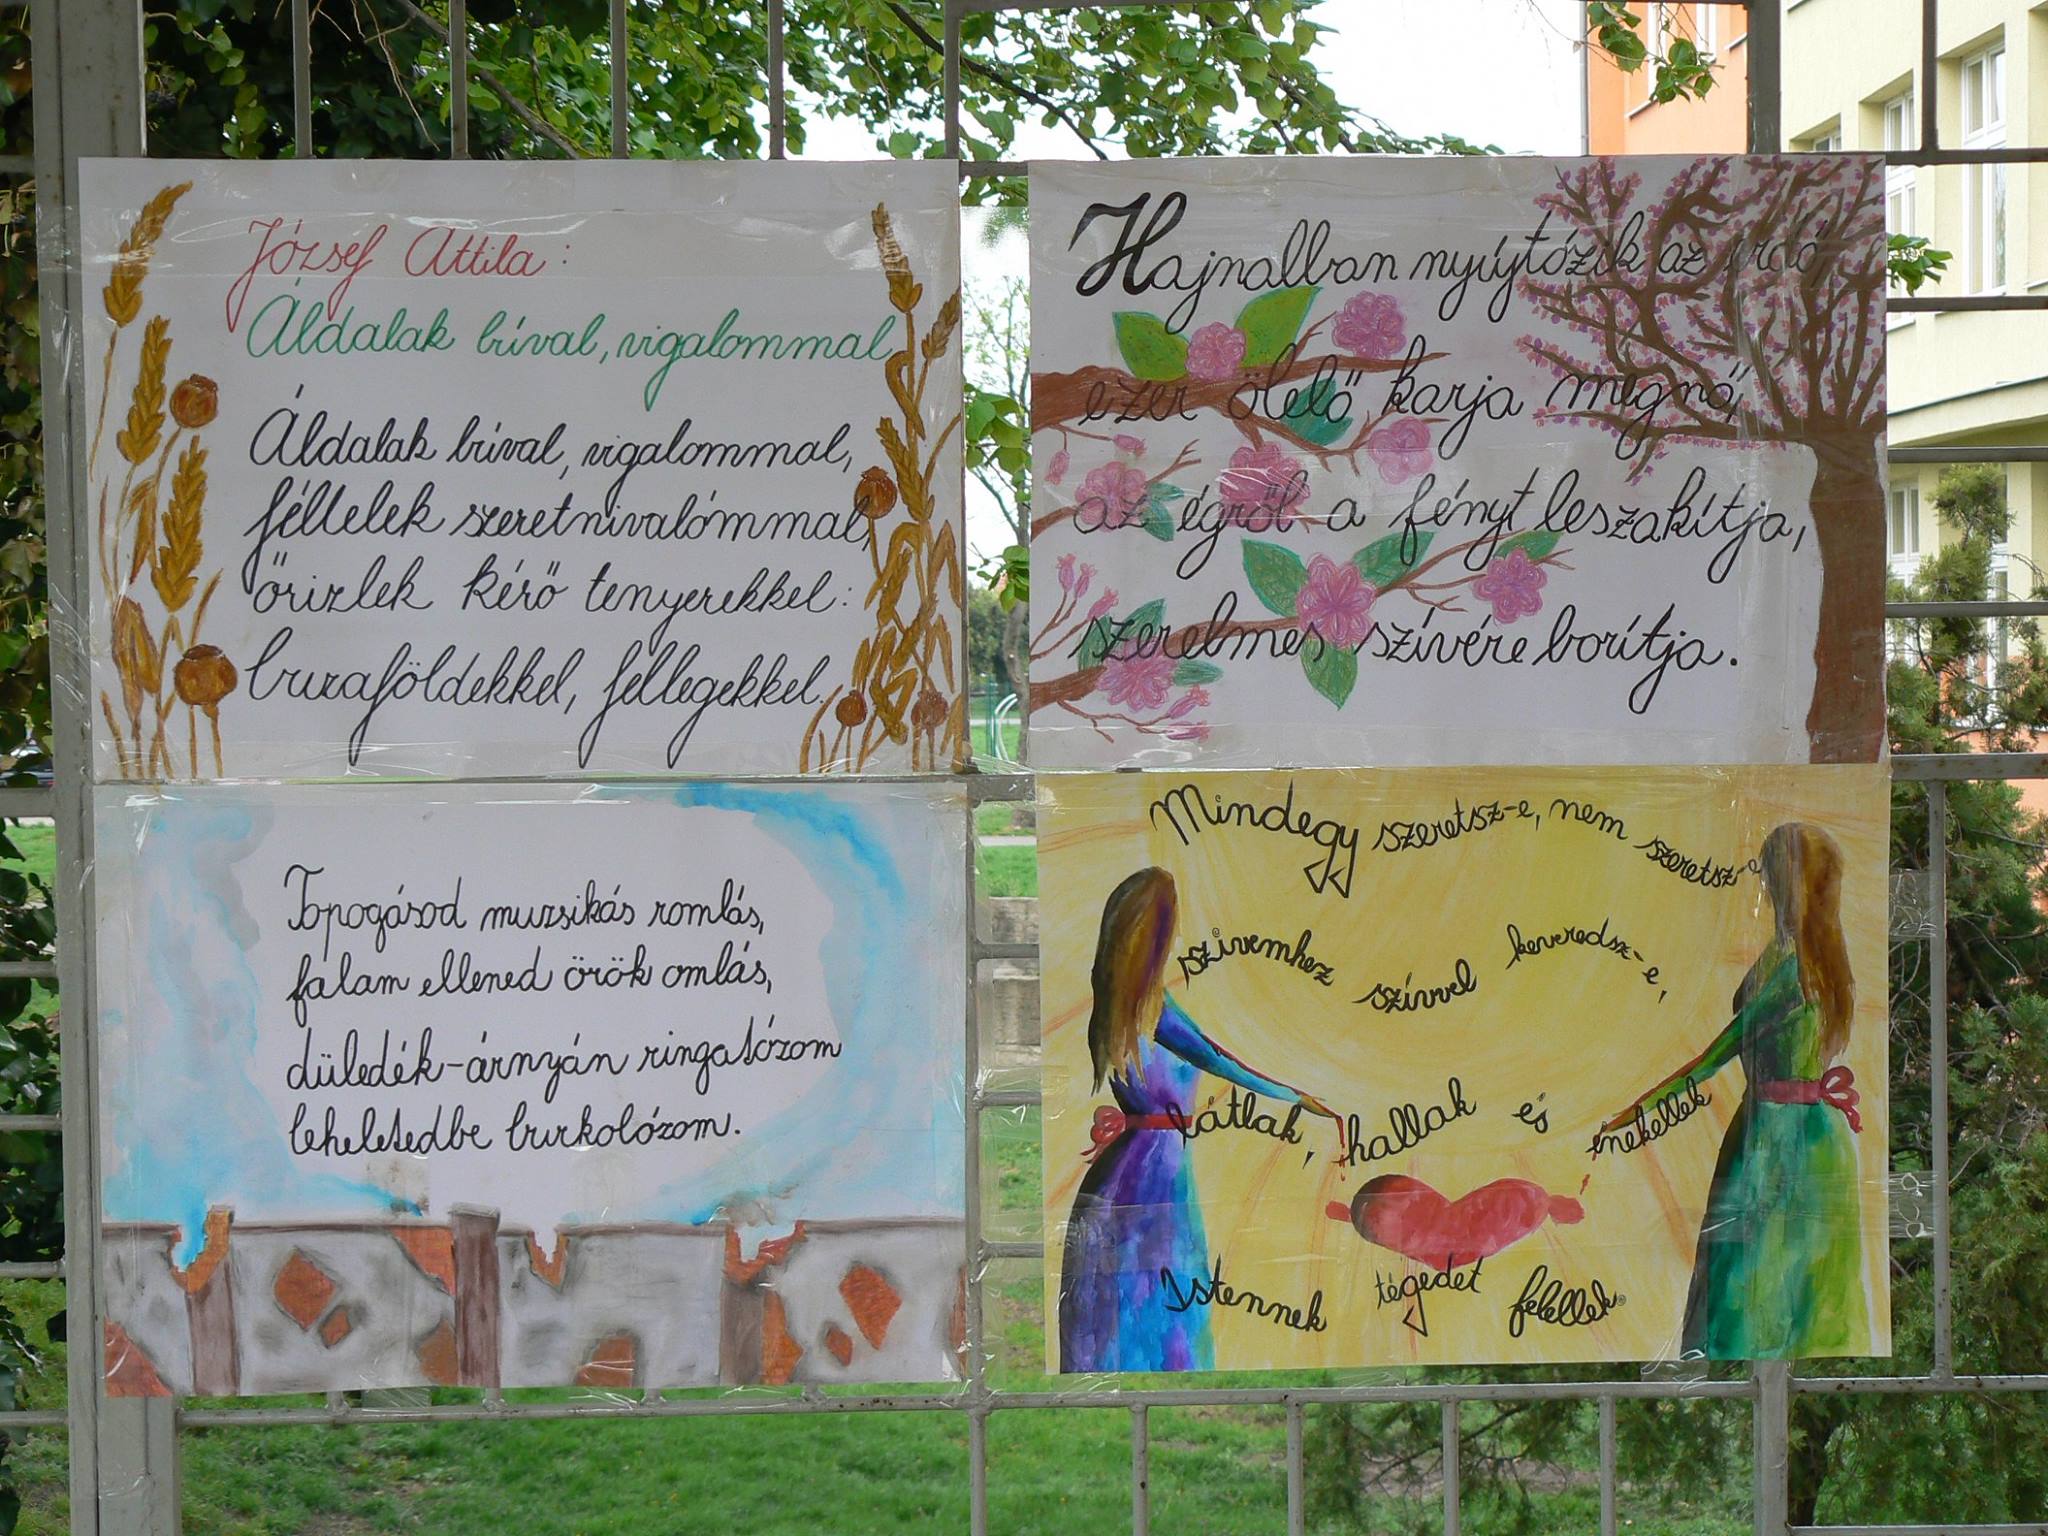 József Attila:
Áldalak búval, vigalommal
Áldalak búval, vigalommal,
féltelek szeretnivalómmal,
őrizlek kérő tenyerekkel:
buzaföldekkel, fellegekkel.
Hajnalban nyújtózik az erdő,
ezer ölelő karja megnő,
az égről a fényt leszakítja,
szerelmes szívére borítja.
Topogásod muzsikás romlás,
falam ellened örök omlás,
düledék-árnyán ringatózom
leheletedbe burkolózom.
Mindegy szeretsz-e, nem szeretsz-e
szívemhez szívvel keveredsz-e,
látlak, hallak és énekellek
Istennek tégedet felellek.